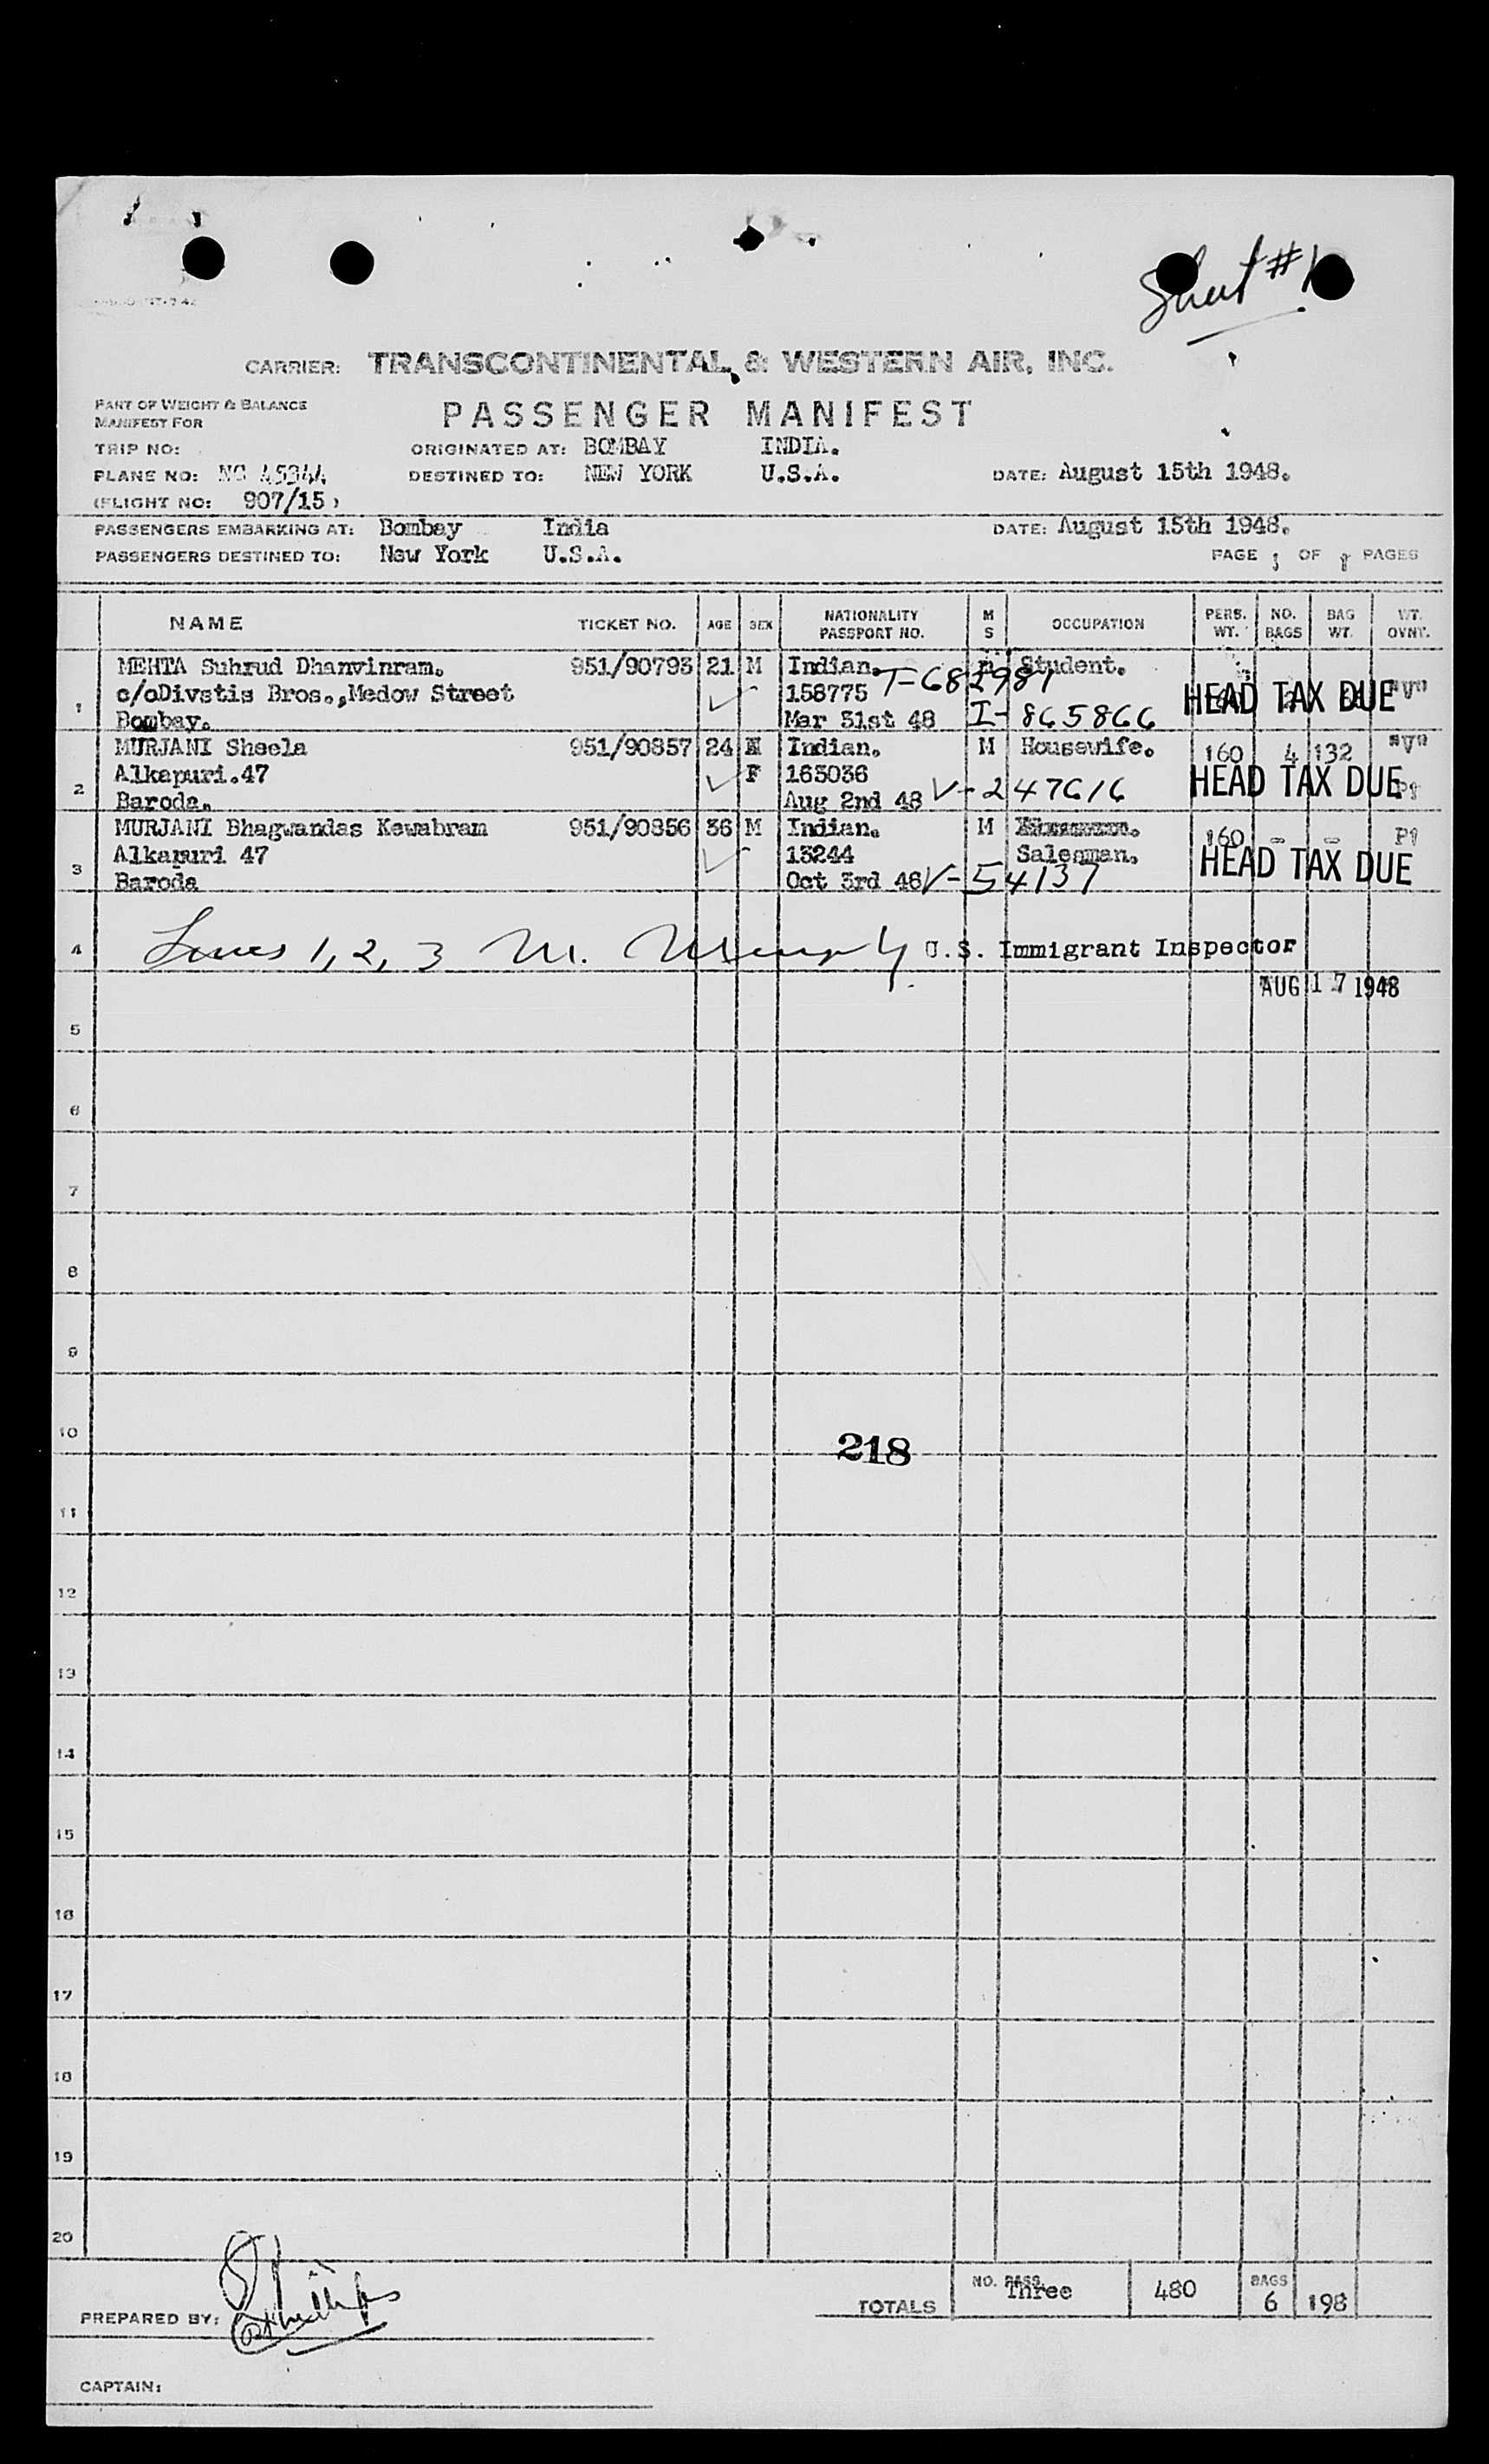 Sheet #1
CARRIER: TRANSCONTINENTAL & WESTERN AIR, INC.
PART OF WEIGHT & BALANCE
MANIFEST FOR
PASSENGER MANIFEST
TRIP NO: ORIGINATED AT: BOMBAY INDIA.
PLANE NO: NC DESTINED TO: NEW YORK U.S.A. DATE: August 15th 1948.
(FLIGHT NO: 907/15)
PASSENGERS EMBARKING AT: Bombay India DATE: August 15th 1948.
PASSENGERS DESTINED TO: New York U.S.A.
PAGE 1 OF PAGES
NAME TICKET NO. AGE SEX NATIONALITY PASSPORT NO. M S OCCUPATION PERS. WT. NO. BAGS BAG WT. WT. OVNT.
MEHTA Suhrud Dhanvinram. 951/90793 21 M Indian. Student.
c/oDivstis Bros.,Medow Street 158775 T-682981 HEAD TAX DUE "V"
1 Bombay. Mar 31st 48 I-865866
MURJANI Sheela 951/90857 24 M Indian. M Housewife. 160 4 132 "V"
Alkapuri.47 F 163036 HEAD TAX DUE
2 Baroda. Aug 2nd 48 V-247616
MURJANI Bhagwandas Kewabram 951/90856 36 M Indian. M 160 - - P1
Alkapuri 47 13244 Salesman. HEAD TAX DUE
3 Baroda Oct 3rd 46 V-54137
4 Lines 1, 2, 3 M. U.S. Immigrant Inspector
AUG 17 1948
5
6
7
8
9
10
218
11
12
13
14
15
16
17
18
19
20
TOTALS NO. PASS. Three 480 BAGS 6 198
PREPARED BY:
CAPTAIN: